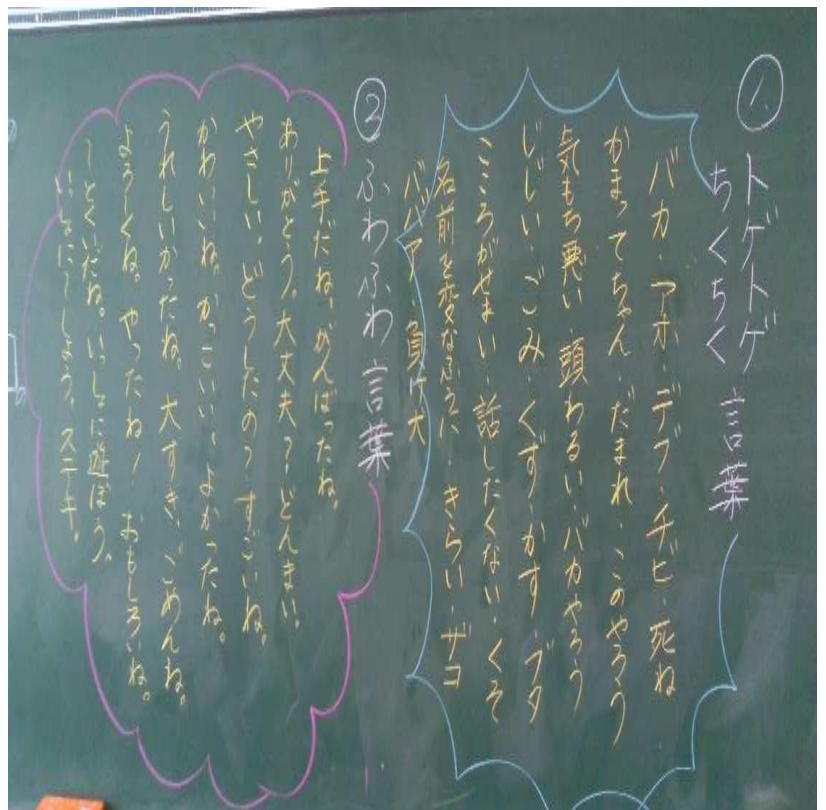 ①
トゲトゲ
ちくちく 言葉
バカ・アホ・デブ・チビ・死ね
かまってちゃん・だまれ・このやろう
気もち悪い・頭わるい・バカやろう
じじい・ごみ・くず・かす・ブタ
こころがせまい・話したくない・くそ
名前を変なふうに・きらい・ザコ
ババアー・負け犬
② ふわふわ言葉
上手だね。がんばったね。
ありがとう。大丈夫?どんまい。
やさしい。どうしたの?すごいね。
かわいいね。かっこいい。よかったね。
うれしいかったね。大すき、ごめんね。
よろしくね。やったね! おもしろいね。
〜とくいだね。いっしょに遊ぼう。
いっしょに〜しよう。ステキ。